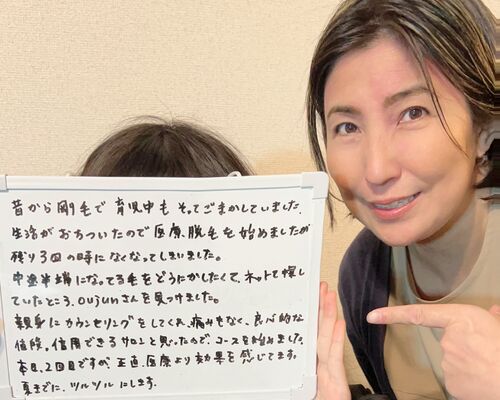 昔から剛毛で育児中もそってごまかしていました。
生活がおちついたので医療脱毛を始めましたが
残り3回の時になくなってしまいました。
中途半端になってる毛をどうにかしたくて、ネットで探し
ていたところ、oujunさんを見つけました。
親身にカウンセリングをしてくれ、痛みもなく、良心的な
値段。信用できるサロンと思ったので、コースを始めました。
本日、2回目ですが、正直、医療より効果を感じてます。
夏までに、ツルツルにします。